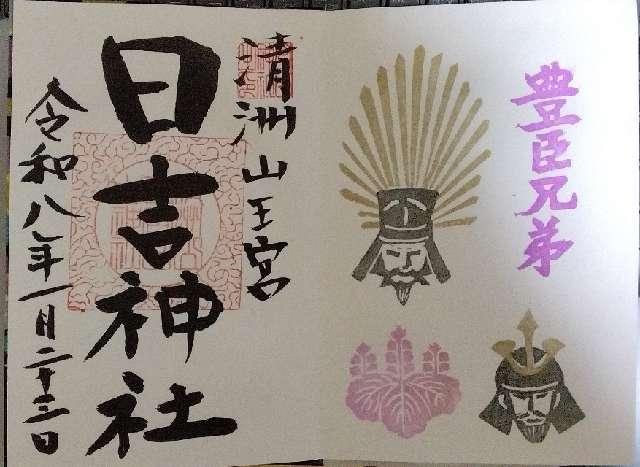 豊臣兄弟
清洲山王宮
日吉神社
令和八年一月二十三日